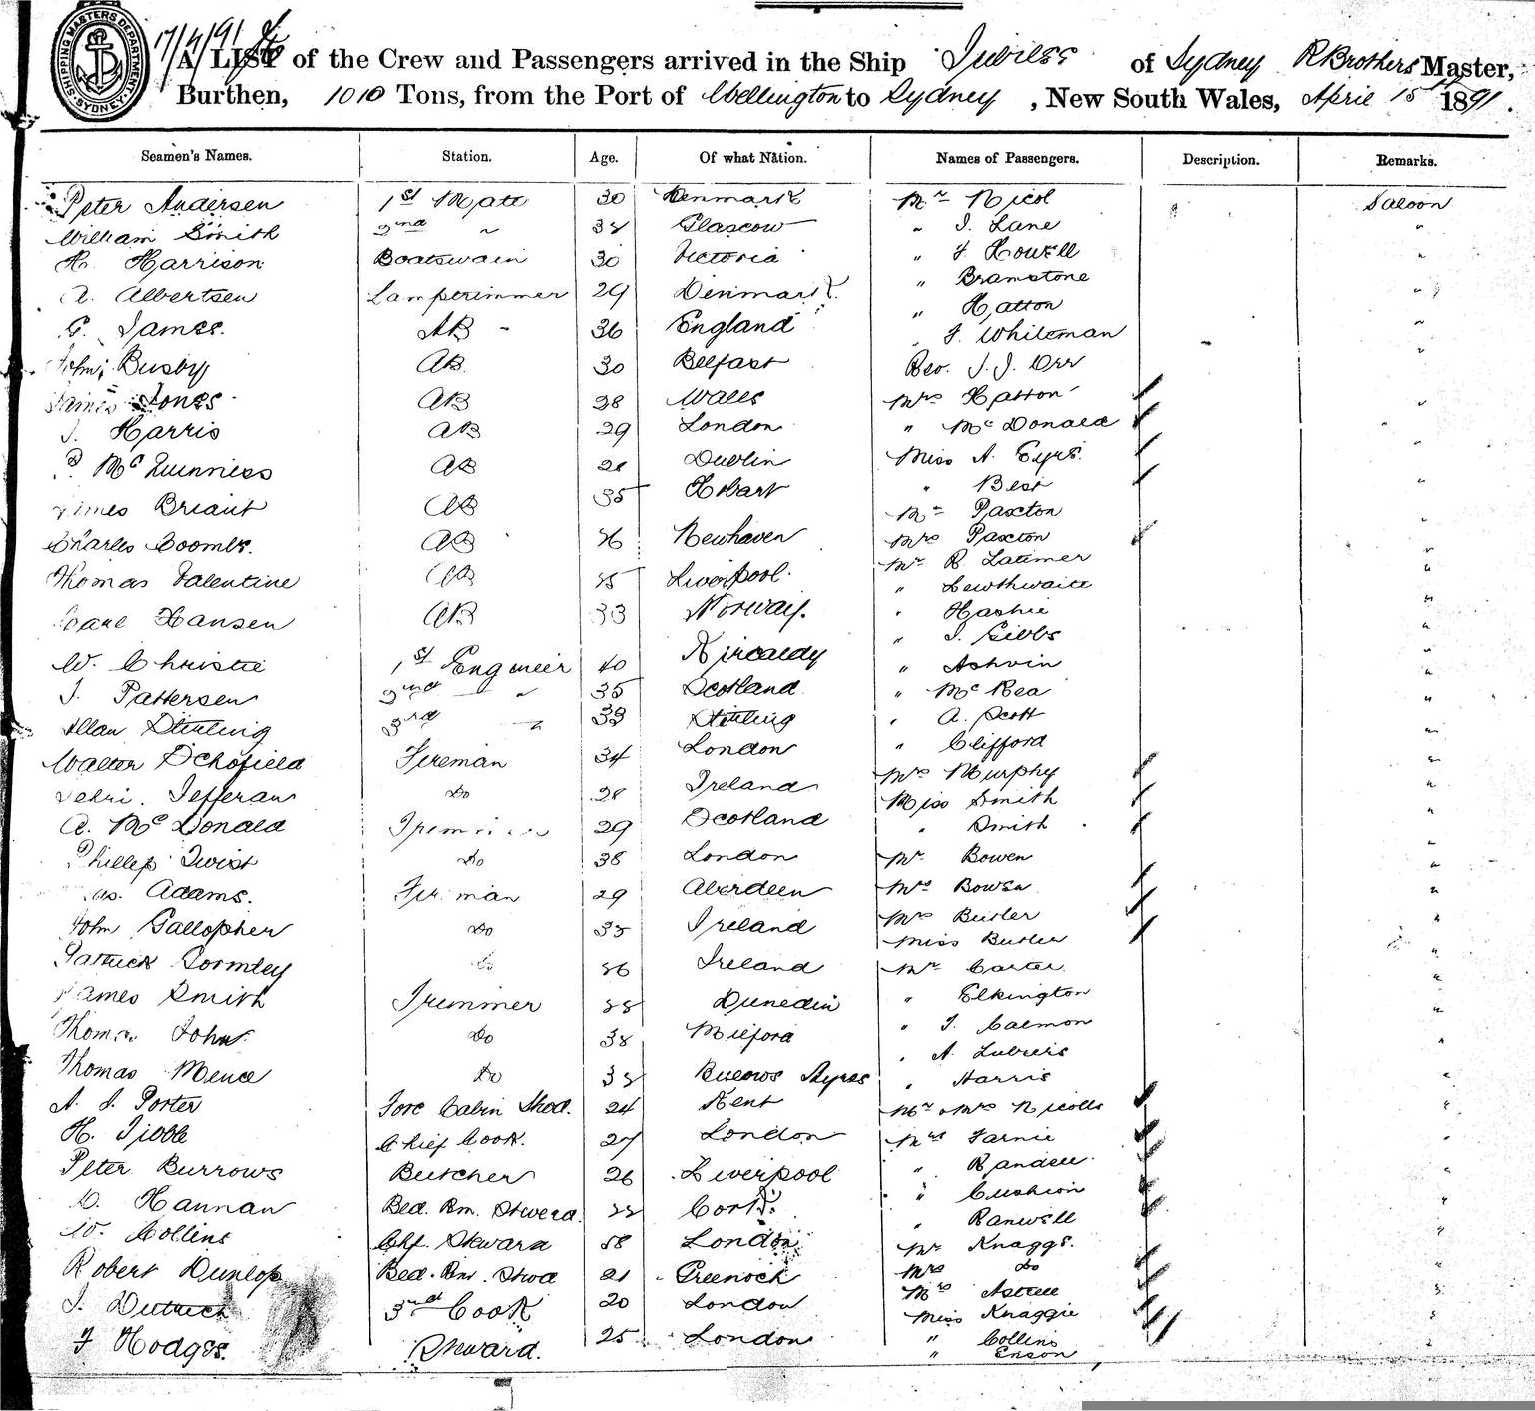 SHIPPING MASTERS DEPARTMENT SYDNEY
17/4/91
A LIST of the Crew and Passengers arrived in the Ship Jubilee of Sydney R Brothers Master,
Burthen, 1010 Tons, from the Port of Wellington to Sydney, New South Wales, April 15 1891.
Seamen's Names. Station. Age. Of what Nation. Names of Passengers. Description. Remarks.
Peter Andersen 1st Mate 30 Denmark Mr Nicol Saloon
William Smith 2nd " 38 Glascow " J. Lane "
H. Harrison Boatswain 30 Victoria " J Howell "
A. Albertsen Lamptrimmer 29 Denmark " Bramstone "
G. James. AB 36 England " Hatton "
John Busby AB. 30 Belfast " J. Whiteman "
James Jones AB 28 Wales Rev. J. J. Orr "
J. Harris AB 29 London Mrs Hatton "
P. McGuinness AB 21 Dublin " McDonald "
James Briant AB 35 Hobart Miss A. Eyre. "
Charles Coombs. AB 26 Newhaven " Best "
Thomas Valentine AB 25 Liverpool. Mr Paxton "
Carl Hansen AB 33 Norway. Mrs Paxton "
W. Christie 1st Engineer 40 Kircaldy Mr R Latimer "
J. Pattersen 2nd " 35 Scotland " Lewthwaite "
Allan Stirling 3rd " 33 Stirling " Hashie "
Walter Schofield Fireman 34 London " J. Gibbs "
Jefferan Do 28 Ireland " Ashvin "
A. McDonald 29 Scotland " McRea "
Phillip Twist Do 38 London " A. Scott "
Jas. Adams. Fireman 29 Aberdeen " Clifford "
John Gallopher Do 35 Ireland Mrs Murphy "
Patrick Gormley Do 26 Ireland Miss Smith "
James Smith Trimmer 28 Dunedin " Smith "
Thomas John Do 38 Milford Mr. Bowen "
Thomas Mence Do 38 Buenos Ayres Mrs Bowen "
A. J. Porter Fore Cabin Stwd. 24 Kent Mrs Butler "
H. Tibble Chief Cook. 27 London Miss Butler "
Peter Burrows Butcher 26 Liverpool Mr Carter "
D. Hannan Bed. Rm. Stwerd. 22 Cork. " Elkington "
W. Collins Chf. Steward 58 London " J. Calmon "
Robert Dunlop Bed. Rm. Stwd 21 Greenock " A. Lubiers "
J. Dietrich 3rd Cook 20 London " Harris "
J Hodges. Steward. 25 London Mr & Mrs Nicolls "
Mrs Farnie "
" Randell "
" Cushion "
" Ranwell "
Mr Knaggs. "
Mrs Do "
Mrs Astell "
Miss Knaggie "
" Collins "
" Enson "